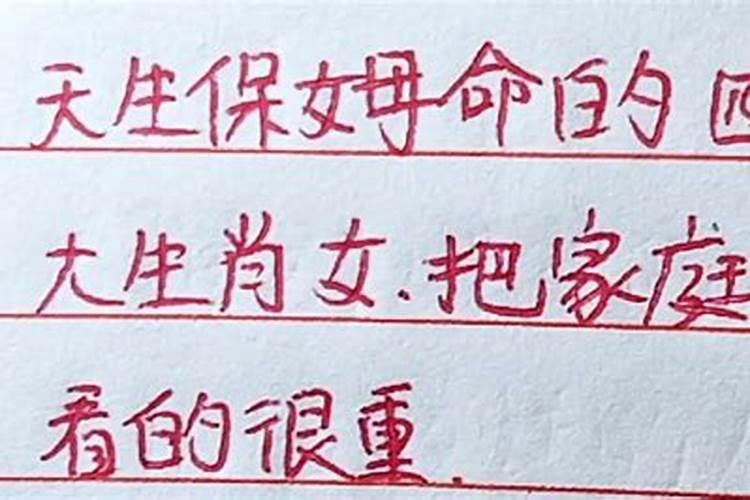 天生保姆命的四
大生肖女.把家庭
看的很重.